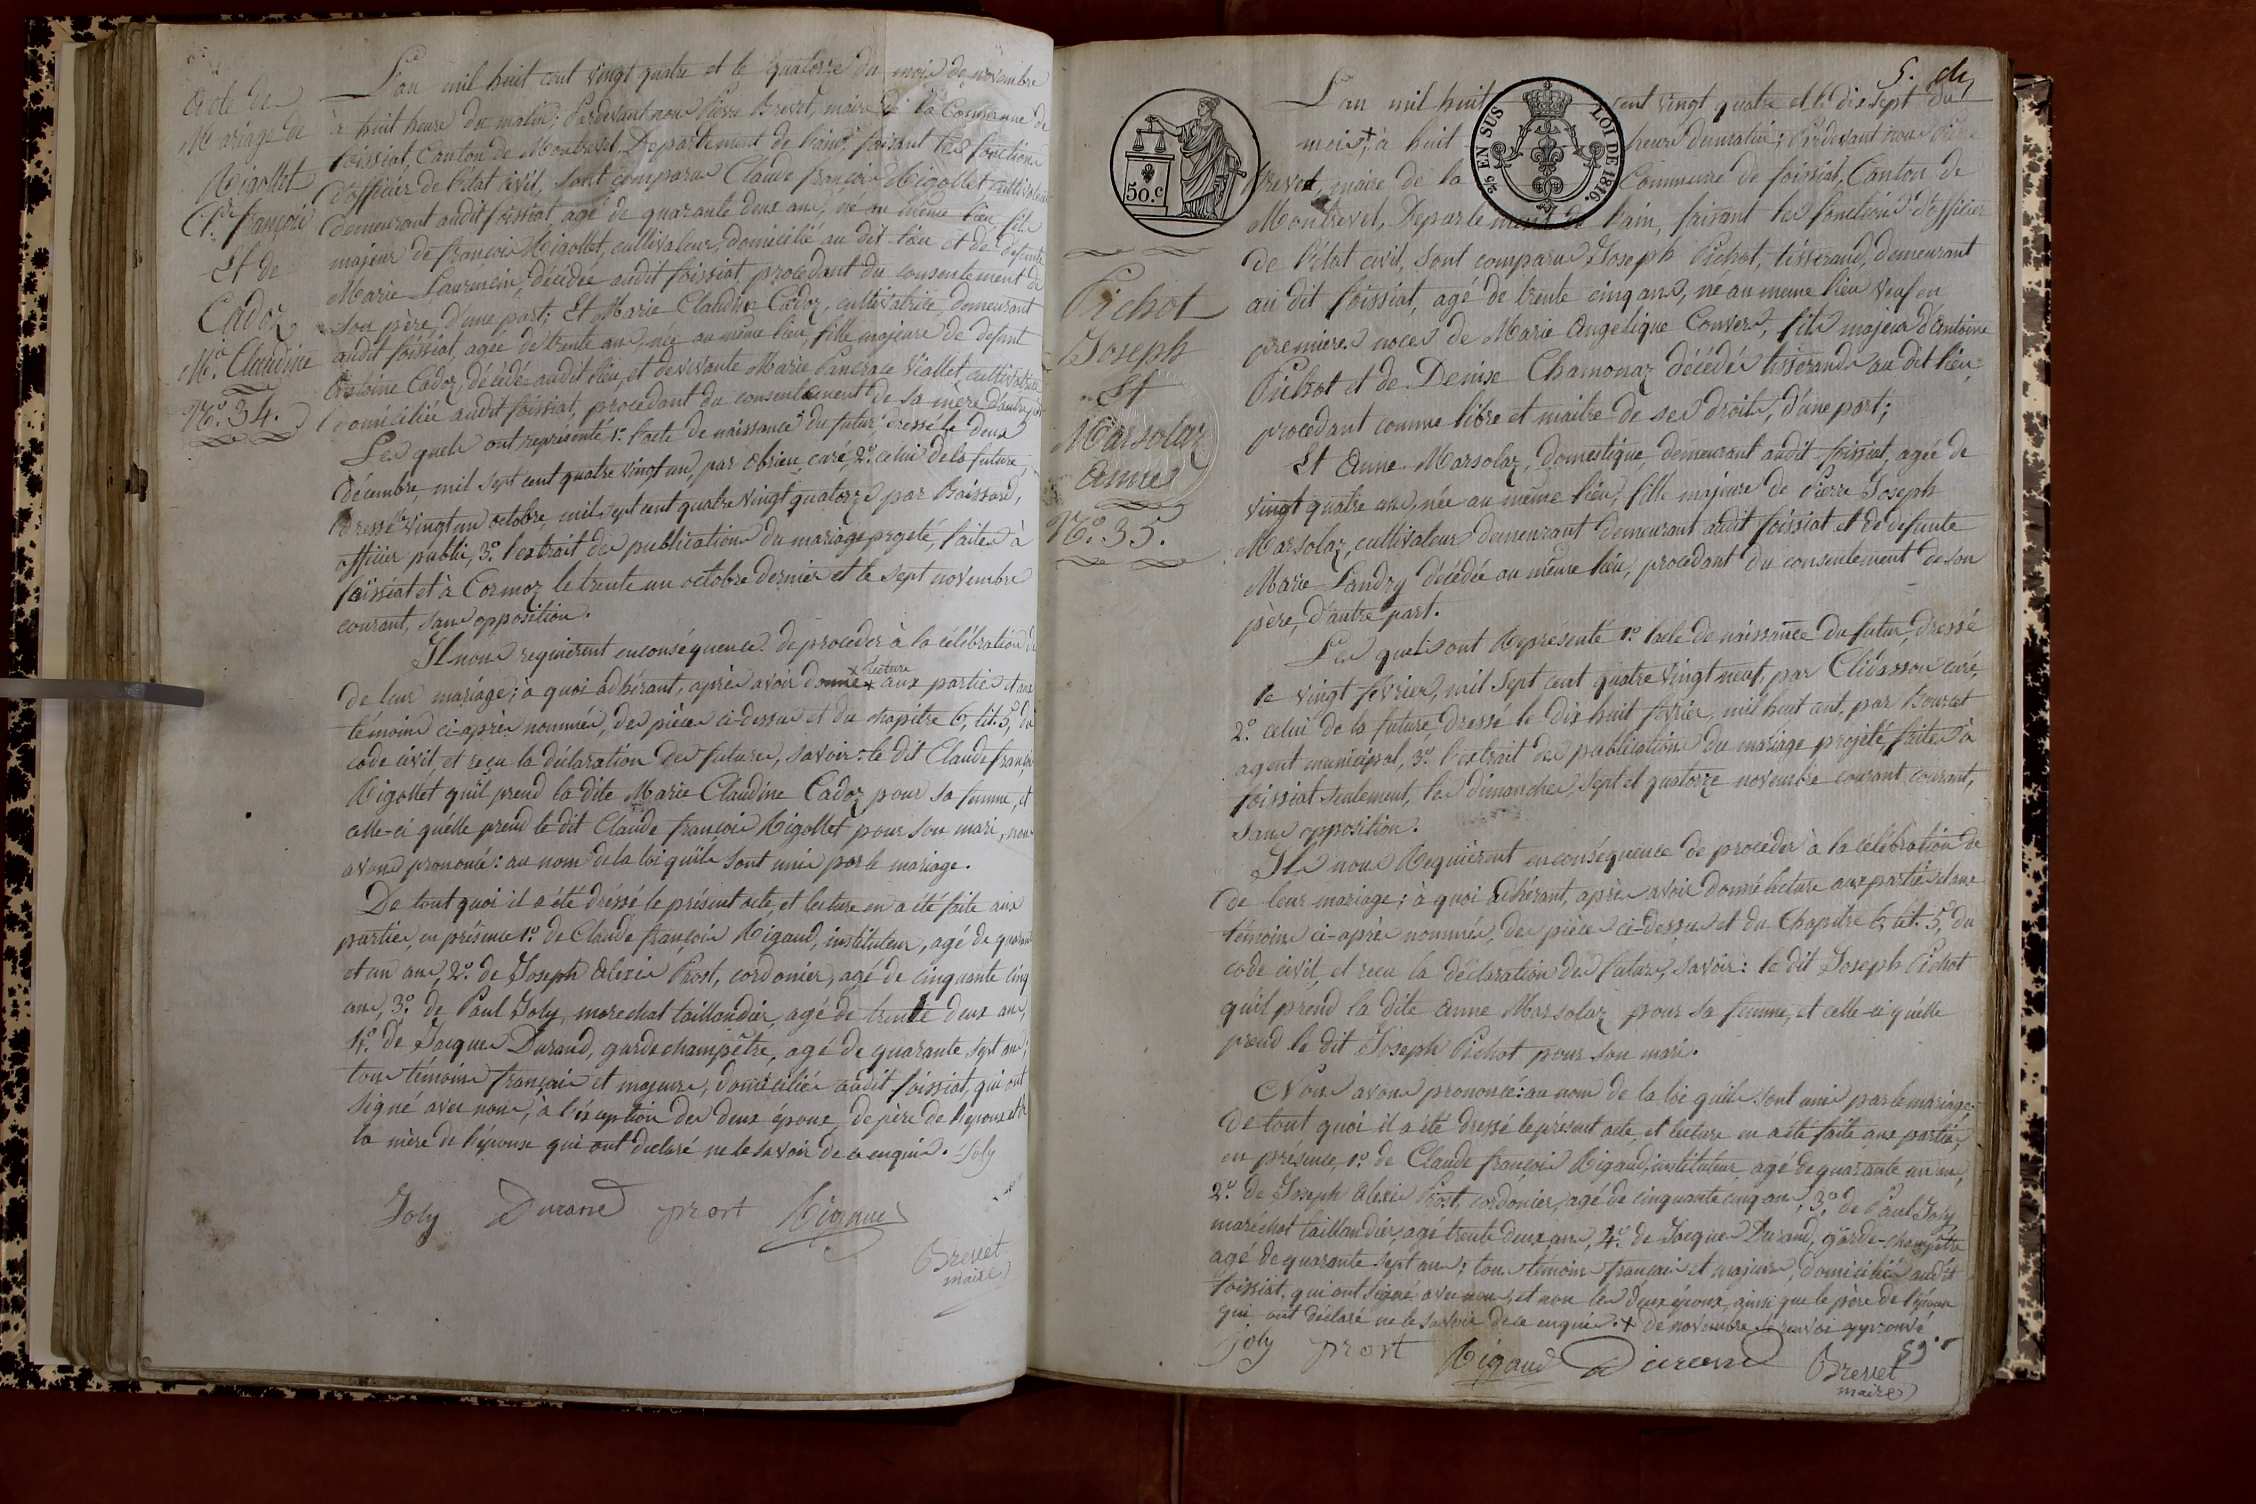 Acte de
Mariage de
Rigollet
Cl.de françois
Et de
Cadoz
M.ie Claudine
N.o 34.
L'an mil huit cent vingt quatre et le quatorze du mois de novembre
à huit heure du matin; Pardevant nous Pierre Brevet, maire de la Commune de
foissiat, Canton de Montrevel, Departement de l'ain, faisant les fonctions
d'officier de l'état civil, sont comparus Claude françois Rigollet cultivateur
demeurant audit foissiat, agé de quarante deux ans, né au même lieu, fils
majeur de françois Rigollet, cultivateur, domicilié au dit lieu et de défunte
Marie Laurencin, décédée audit foissiat, procedant du consentement de
son père, d'une part; Et Marie Claudine Cadoz, cultivatrice, demeurant
audit foissiat, agée de trente ans, née au même lieu, fille majeure de defunt
Antoine Cadoz, décédé audit lieu, et de vivante Marie Pancrace Viallet cultivatrice
domiciliée audit foissiat, procedant du consentement de sa mère d'autre part
Les quels ont représenté 1.o l'acte de naissance du futur, dressé le deux
décembre, mil sept cent quatre vingt un, par Obrieu, curé, 2.o celui de la future,
dressé le vingt un octobre, mil sept cent quatre vingt quatorze par Boissard,
officier public, 3.o l'extrait des publications du mariage projeté, faites à
foissiat et à Cormoz le trente un octobre dernier et le sept novembre
courant, sans opposition.
Ils nous requierent en conséquence de proceder à la célébration de
de leur mariage; à quoi adhérant, après avoir donné × lecture aux parties et aux
témoins ci-après nommés, des pièces ci-dessus et du chapitre 6, tit. 5, du
code civil, et reçu la déclaration des futurs, savoir: le dit Claude françois
Rigollet qu'il prend la dite Marie Claudine Cadoz pour sa femme, et
celle-ci qu'elle prend le dit Claude françois Rigollet pour son mari, nous
avons prononcé: au nom de la loi qu'ils sont unis par le mariage.
De tout quoi il a été dréssé le présent acte, et lecture en a été faite aux
parties, en présence 1.o de Claude françois Rigaud, instituteur, agé de quarante
et un ans, 2.o de Joseph Alexis Prost, cordonier, agé de cinquante cinq
ans, 3.o de Paul Joly, marechal taillandier, agé de trente deux ans,
4.o de Jacques Durand, garde champêtre, agé de quarante sept ans;
tous témoins français et majeurs, domiciliés audit foissiat, qui ont
signé avec nous, à l'exception des deux époux, de père de l'epoux et de
la mère de l'épouse qui ont declaré ne le savoir de ce enquis. Joly
Joly Durand prost Rigaud
Brevet
maire
5.
50.c
2/5 EN SUS
LOI DE 1816.
Pichot
Joseph
Et
Marsolaz
Anne
N.o 35.
L'an mil huit cent vingt quatre et le dix sept du
mois × à huit heure du matin; Pardevant nous Pierre
Brevet, maire de la Commune de foissiat, Canton de
Montrevel, Departement de l'ain, faisant les fonctions d'officier
de l'état civil, sont comparus Joseph Pichot, tisserand, demeurant
au dit foissiat, agé de trente cinq ans, né au meme lieu veuf en
premieres noces de Marie Angelique Convert, fils majeur d'Antoine
Pichot et de Denise Chamonaz décédés tisserands au dit lieu,
procédant comme libre et maitre de ses droits, d'une part;
Et Anne Marsolaz, domestique, demeurant audit foissiat, agée de
vingt quatre ans, née au même lieu, fille majeure de Pierre Joseph
Marsolaz, cultivateur demeurant demeurant audit foissiat et de defunte
Marie Landry décédée au même lieu, procédant du consentement de son
père, d'autre part.
Les quels ont Représenté 1.o l'acte de naissance du futur, dressé
le vingt février, mil sept cent quatre vingt neuf, par curé,
2.o celui de la future, dressé le dix huit février, mil huit cent, par
agent municipal, 3.o l'extrait des publications du mariage projeté faites à
foissiat seulement, les dimanches, sept et quatorze novembre courant, courant,
sans opposition.
Ils nous Requièrent en conséquence de proceder à la célébration de
de leur mariage; à quoi adhérant, après avoir donné lecture aux parties et aux
témoins ci-après nommés, des pièces ci-dessus et du Chapitre 6, tit. 5, du
code civil, et reçu la déclaration des futurs, savoir: le dit Joseph Pichot
qu'il prend la dite Anne Marsolaz pour sa femme, et celle-ci qu'elle
prend le dit Joseph Pichot pour son mari.
Nous avons prononcé: au nom de la loi qu'ils sont unis par le mariage.
De tout quoi il a été dressé le présent acte, et lecture en a été faite aux parties,
en présence, 1.o de Claude françois Rigaud, instituteur, agé de quarante un ans,
2.o de Joseph Alexis Prost, cordonier, agé de cinquante cinq ans, 3.o de Paul Joly,
maréchal taillandier, agé trente deux ans, 4.o de Jacques Durand, garde-champêtre
agé de quarante sept ans; tous témoins français et majeurs, domiciliés audit
foissiat, qui ont signé avec nous, et non les deux époux, ainsi que le père de l'épouse
qui ont déclaré ne le savoir de ce enquis. × de novembre le renvoi approuvé
joly prost Rigaud Durand
Brevet
maire